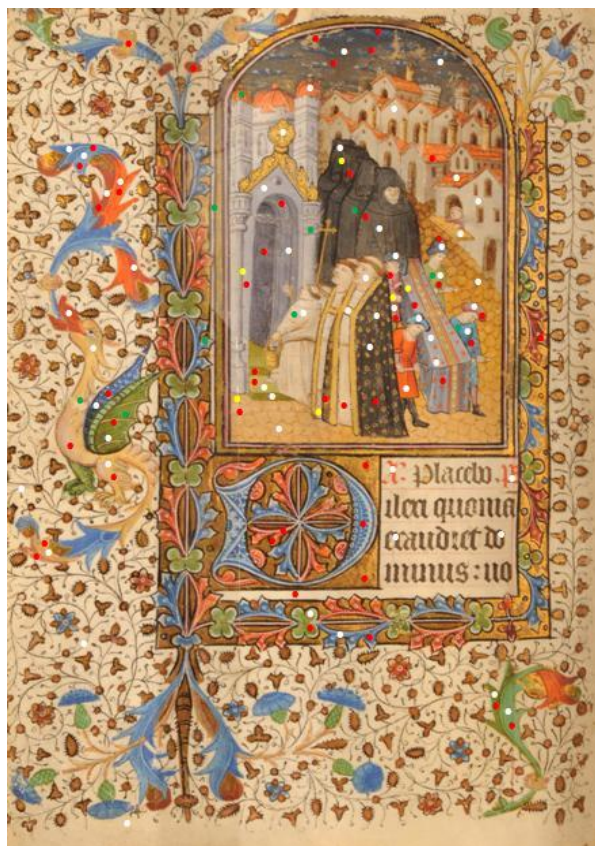 a. Placebo. p
Dilexi quonia
exaudiet do
minus : uo